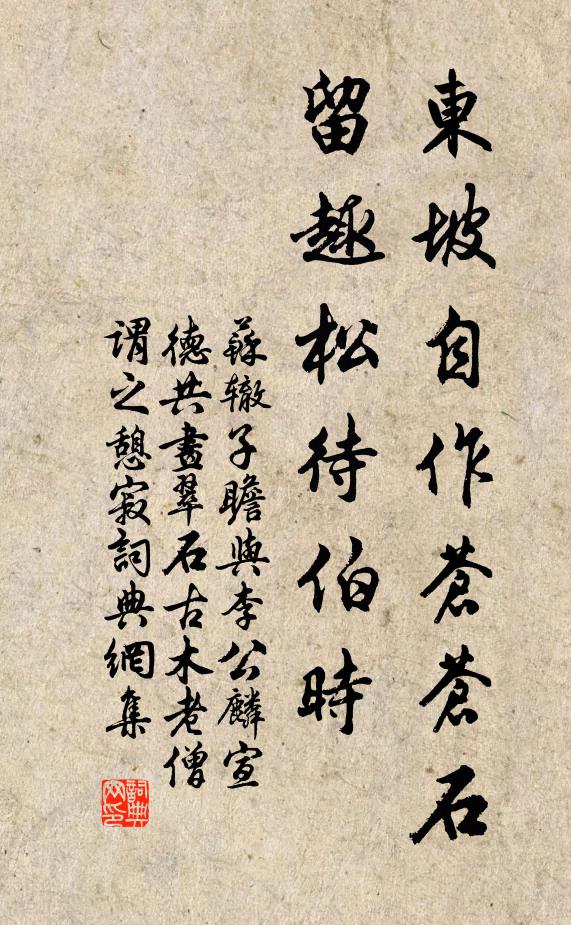 東坡自作蒼蒼石
留趣松待伯時
蘇辙子瞻與李公麟宣
德共畫翠石古木老僧
謂之憩寂詞典網集
詞典
网印